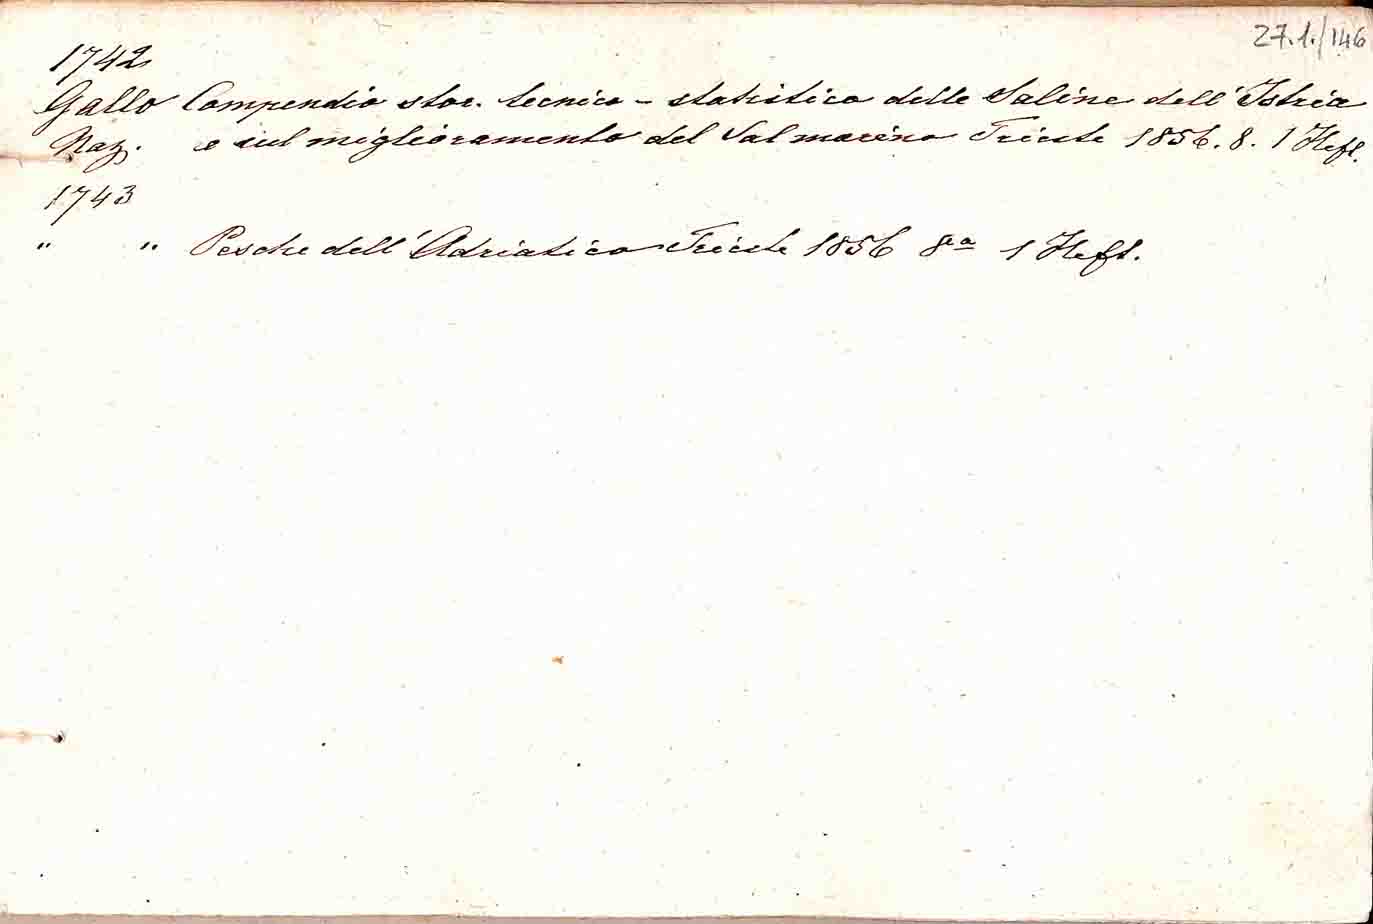 27.1./146
1742
Gallo Compendio stor. tecnico - statistico delle Saline dell' Istria
Naz. e sul miglioramento del Sal marino Trieste 1856. 8. 1 Heft.
1743
" " Pesche dell' Adriatico Trieste 1856 8va 1 Heft.